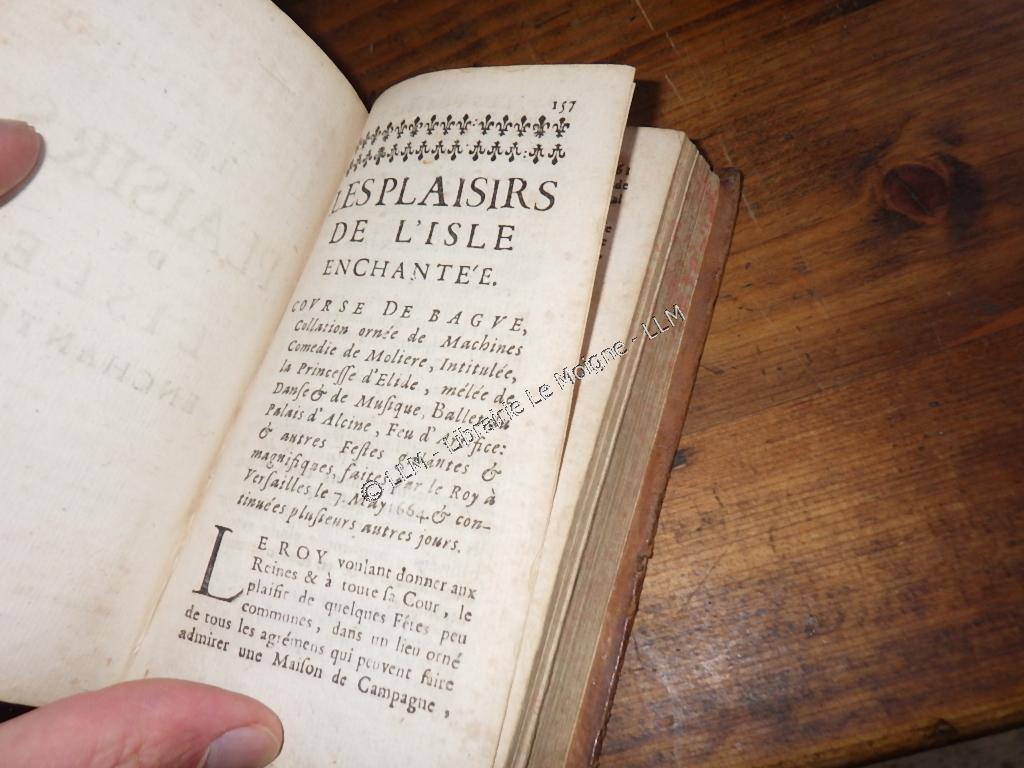 157
LES PLAISIRS
DE L'ISLE
ENCHANTE'E.
COVRSE DE BAGVE,
Collation ornée de Machines
Comedie de Moliere, Intitulée,
la Princesse d'Elide, mélée de
Danse & de Musique, Ballet du
Palais d'Alcine, Feu d'
& autres Festes & 
magnifiques, faites par le Roy à
Versailles, le 7. May 1664. & con-
tinuées plusieurs autres jours.
LE ROY voulant donner aux
Reines & à toute sa Cour, le
plaisir de quelques Fêtes peu
communes, dans un lieu orné
de tous les agrémens qui peuvent faire
admirer une Maison de Campagne,
© LLM - Librairie Le Moigne - LLM